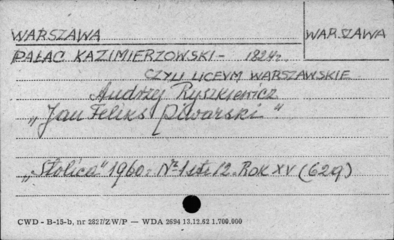 WARSZAWA WARSZAWA
PAŁAC KAZIMIERZOWSKI - 1824r.
CZYLI LICEVM WARSZAWSKIE
Andrzej Ryszkiewicz
„Jan Feliks Piwarski"
„Stolica" 1960r. Nr 1 str. 12. ROK XV (629)
CWD - B-15-b, nr 2821/ZW/P — WDA 2694 13.12.62 1.700.000